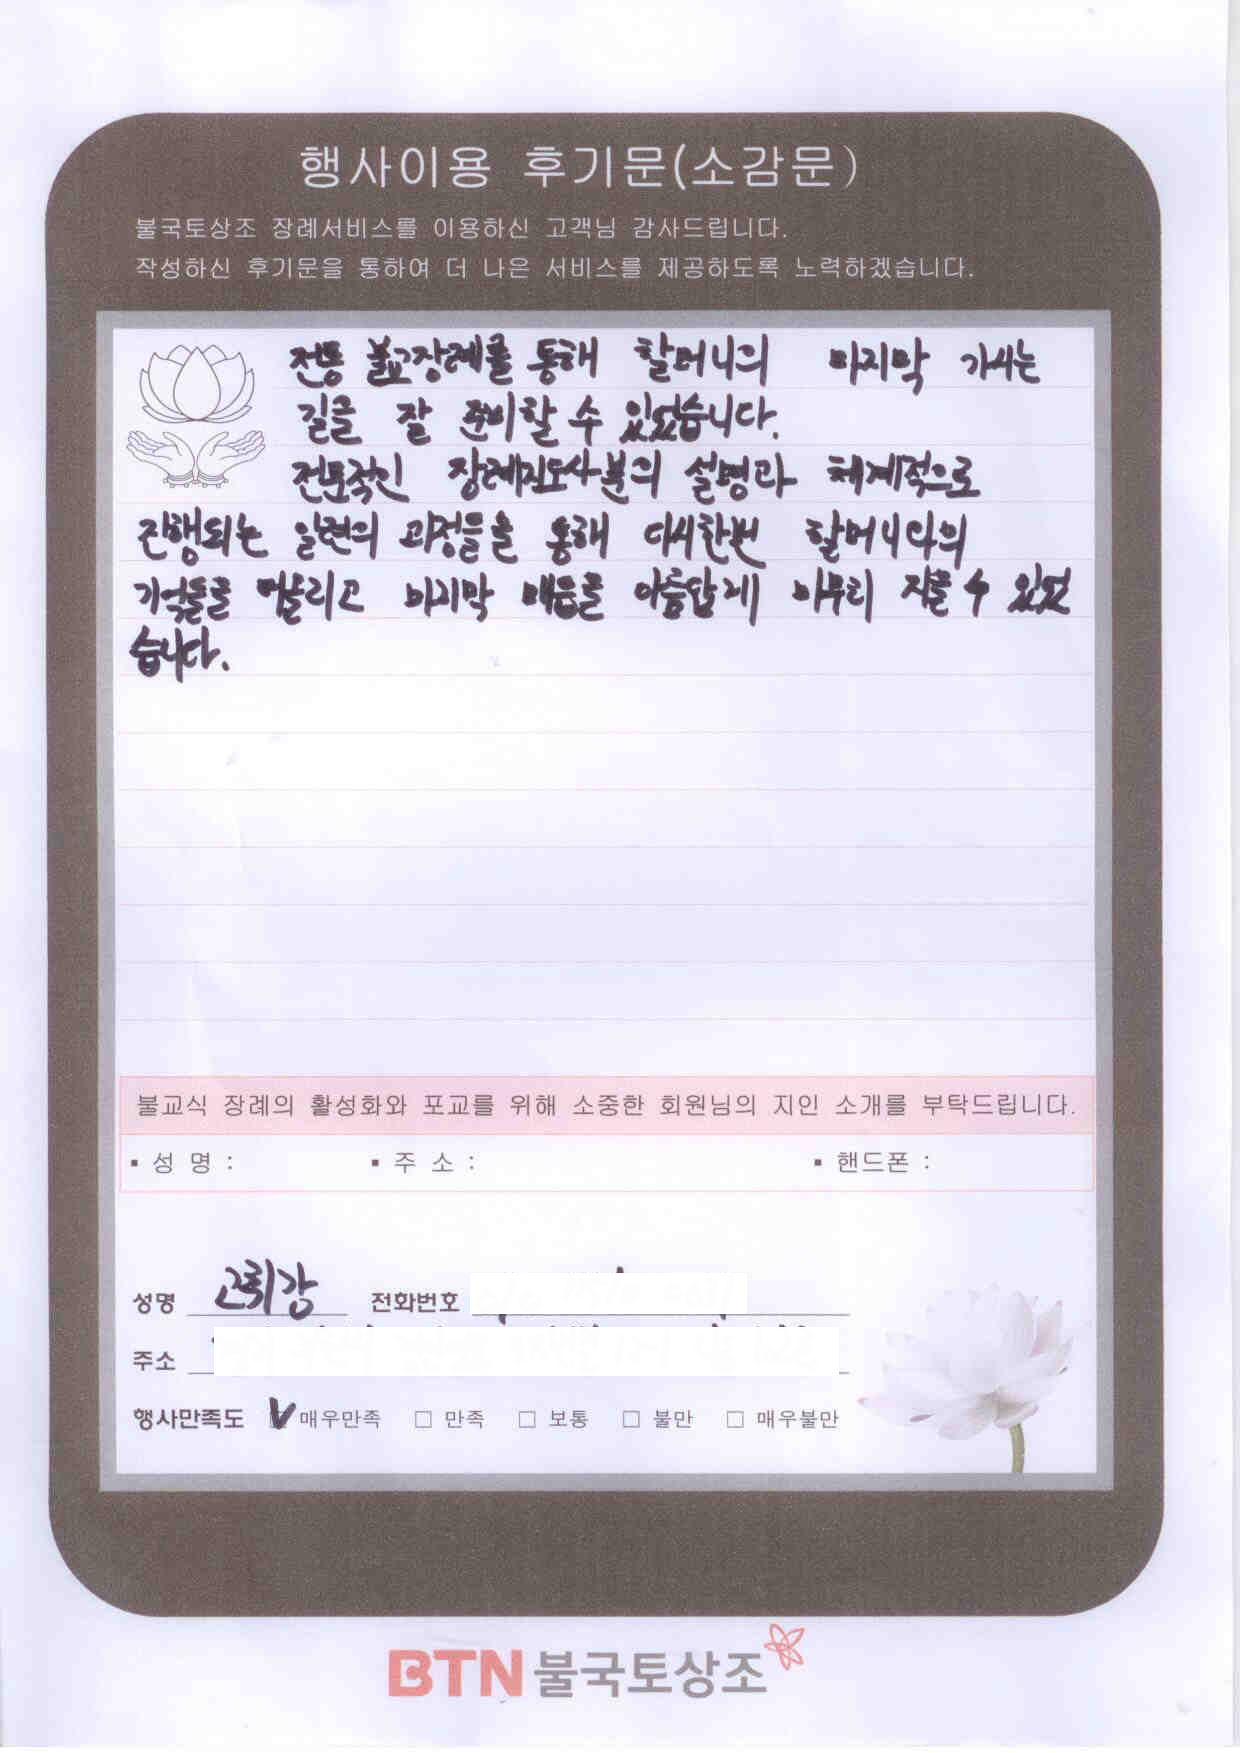 행사이용 후기문(소감문)
불국토상조 장례서비스를 이용하신 고객님 감사드립니다.
작성하신 후기문을 통하여 더 나은 서비스를 제공하도록 노력하겠습니다.
전통 불교장례를 통해 할머니의 마지막 가시는
길을 잘 준비할 수 있었습니다.
전문적인 장례지도사분의 설명과 체계적으로
진행되는 일련의 과정들을 통해 다시한번 할머니와의
기억들을 떠올리고 마지막 매듭을 아름답게 마무리 지을 수 있었
습니다.
불교식 장례의 활성화와 포교를 위해 소중한 회원님의 지인 소개를 부탁드립니다.
▪ 성 명 : ▪ 주 소 : ▪ 핸드폰 :
성명 고휘강 전화번호
주소
행사만족도 V 매우만족 □ 만족 □ 보통 □ 불만 □ 매우불만
BTN 불국토상조